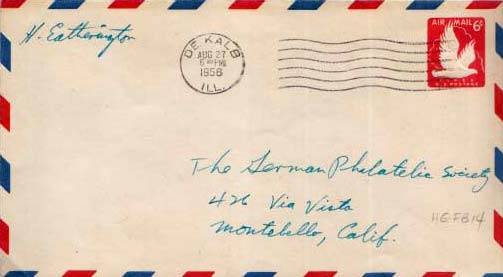 H. Eatherington
DE KALB
AUG 27
5 PM
1956
ILL.
AIR MAIL 6¢
U.S. POSTAGE
The German Philatelic Society
426 Via Vista
Montebello, Calif.